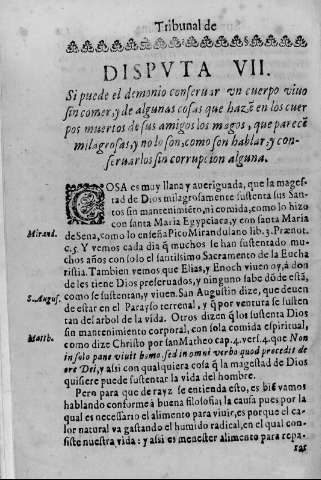 Tribunal de
DISPVTA VII.
Si puede el demonio conseruar vn cuerpo viuo
sin comer, y de algunas cosas que hazē en los cuer
pos muertos de sus amigos los magos, que parecē
milagrosas, y no lo son, como son hablar, y con-
seruarlos sin corrupcion alguna.
COSA es muy llana y aueriguada, que la mages-
tad de Dios milagrosamente sustenta sus San-
tos sin mantenimiēto, ni comida, como lo hizo
con santa Maria Egypciaca, y con santa Maria
Mirand.
de Sena, como lo enseña Pico Mirandulano lib. 3. Prænot.
c. 5. Y vemos cada dia q̄ muchos se han sustentado mu-
chos años con solo el santissimo Sacramento de la Eucha
ristia. Tambien vemos que Elias, y Enoch viuen oy, á don
de les tiene Dios preseruados, y ninguno sabe dōde está,
S. Augus.
como se sustentan, y viuen. San Augustin dize, que deuen
de estar en el Parayso terrenal, y q̄ por ventura se susten
tan del arbol de la vida. Otros dizen q̄ los sustenta Dios
sin mantenimiento corporal, con sola comida espiritual,
Matth.
como dize Christo por san Matheo cap. 4. vers. 4. que Non
in solo pane viuit homo, sed in omni verbo quod procedit de
ore Dei, y assi con qualquiera cosa q̄ la magestad de Dios
quisiere puede sustentar la vida del hombre.
Pero para que de rayz se entienda esto, es biē vamos
hablando conforme à buena filosofia; la causa pues por la
qual es necessario el alimento para viuir, es porque el ca-
lor natural va gastando el humido radical, en el qual con-
siste nuestra vida: y assi es menester alimento para repa-